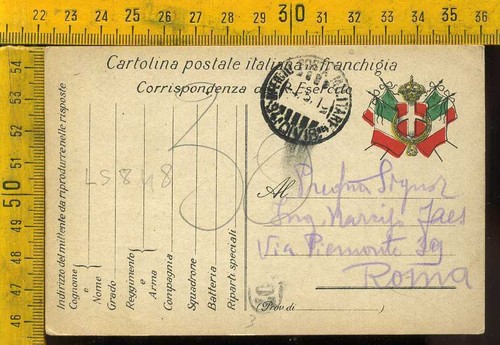 22 23 24 25 26 27 28 29 30 31 32 33 34 35 36
54
53
52
51
50
49
48
47
46
Cartolina postale italiana in franchigia
Corrispondenza del R. Esercito
POSTA MILITARE
Indirizzo del mittente da riprodurre nelle risposte
Cognome
e
Nome
Grado
Reggimento
e
Arma
Compagnia
Squadrone
Batteria
Riparti speciali
LS 8 48
38
Al Pregma Signor
Ing. Narciso Jaes
Via Piemonte 39
Roma
(Prov. di )
30
3